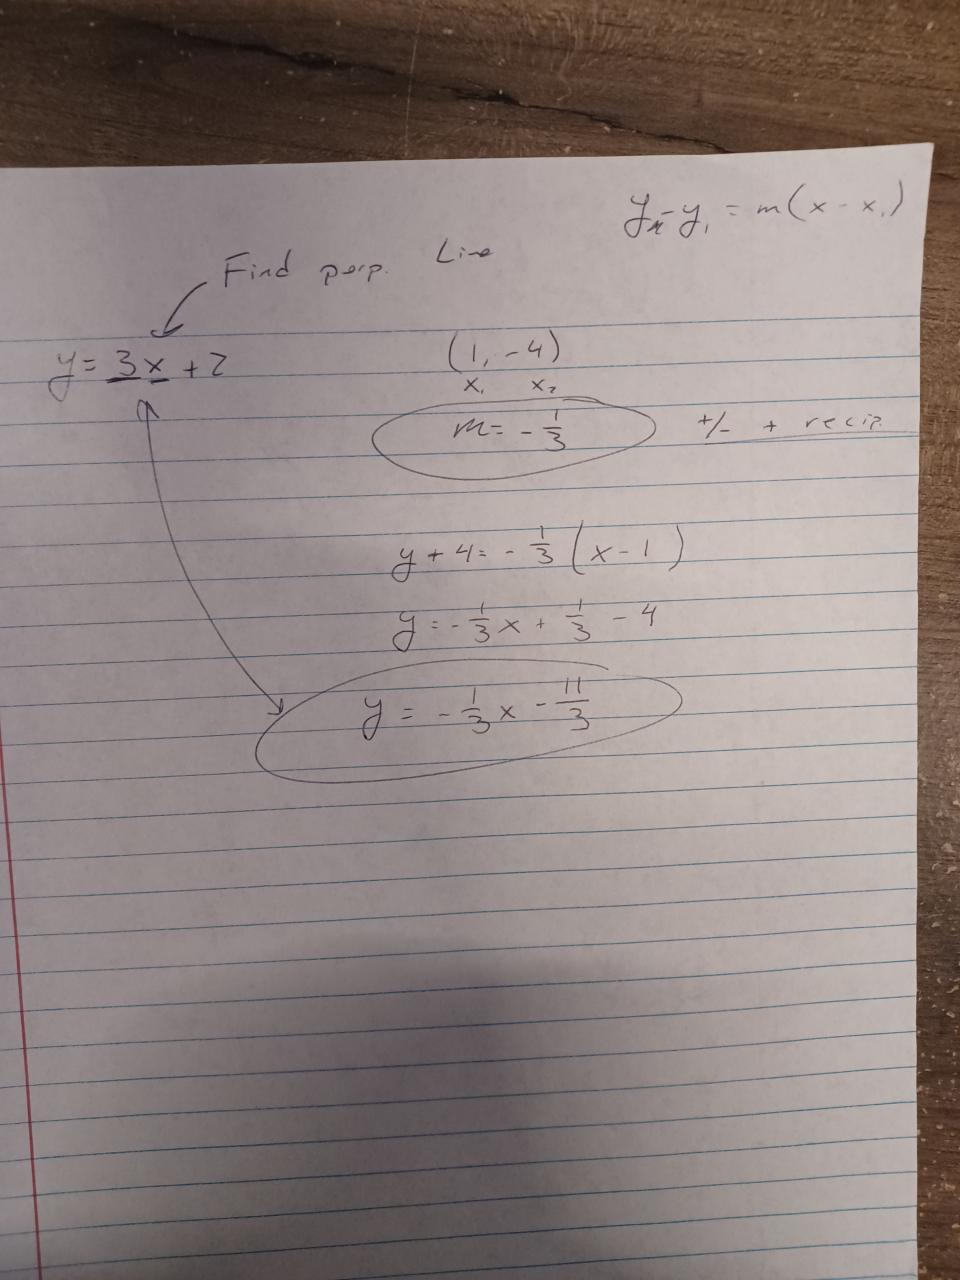 y - y₁ = m(x - x₁)
Find perp. Line
y = 3x + 2
(1, -4)
x₁ x₂
m = - 1/3
+/- + recip.
y + 4 = - 1/3 (x - 1)
y = - 1/3 x + 1/3 - 4
y = - 1/3 x - 11/3